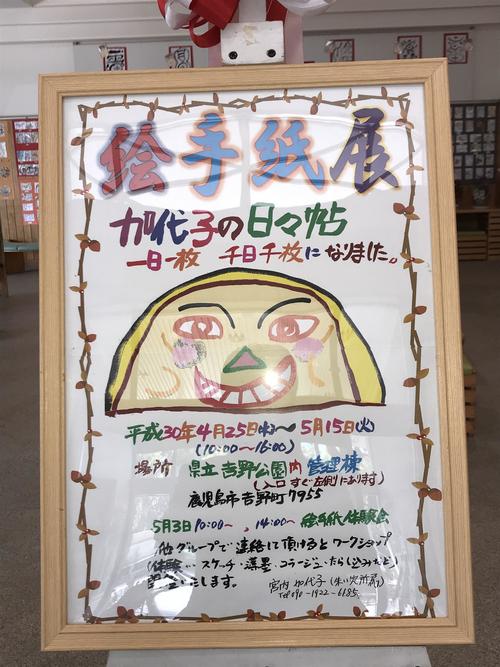 絵手紙展
加代子の日々帖
一日一枚 千日千枚になりました。
平成30年4月25日(水)~5月15日(火)
(10:00~16:00)
場所 県立吉野公園内 管理棟
(入口すぐ左側にあります)
鹿児島市吉野町7955
5月3日10:00~, 14:00~ 絵手紙体験会
他グループで連絡して頂けるとワークショップ
(体験… スケッチ・薄墨・コラージュ・たらし込みなど)
します。
宮内加代子
Tel 090-1922-6685